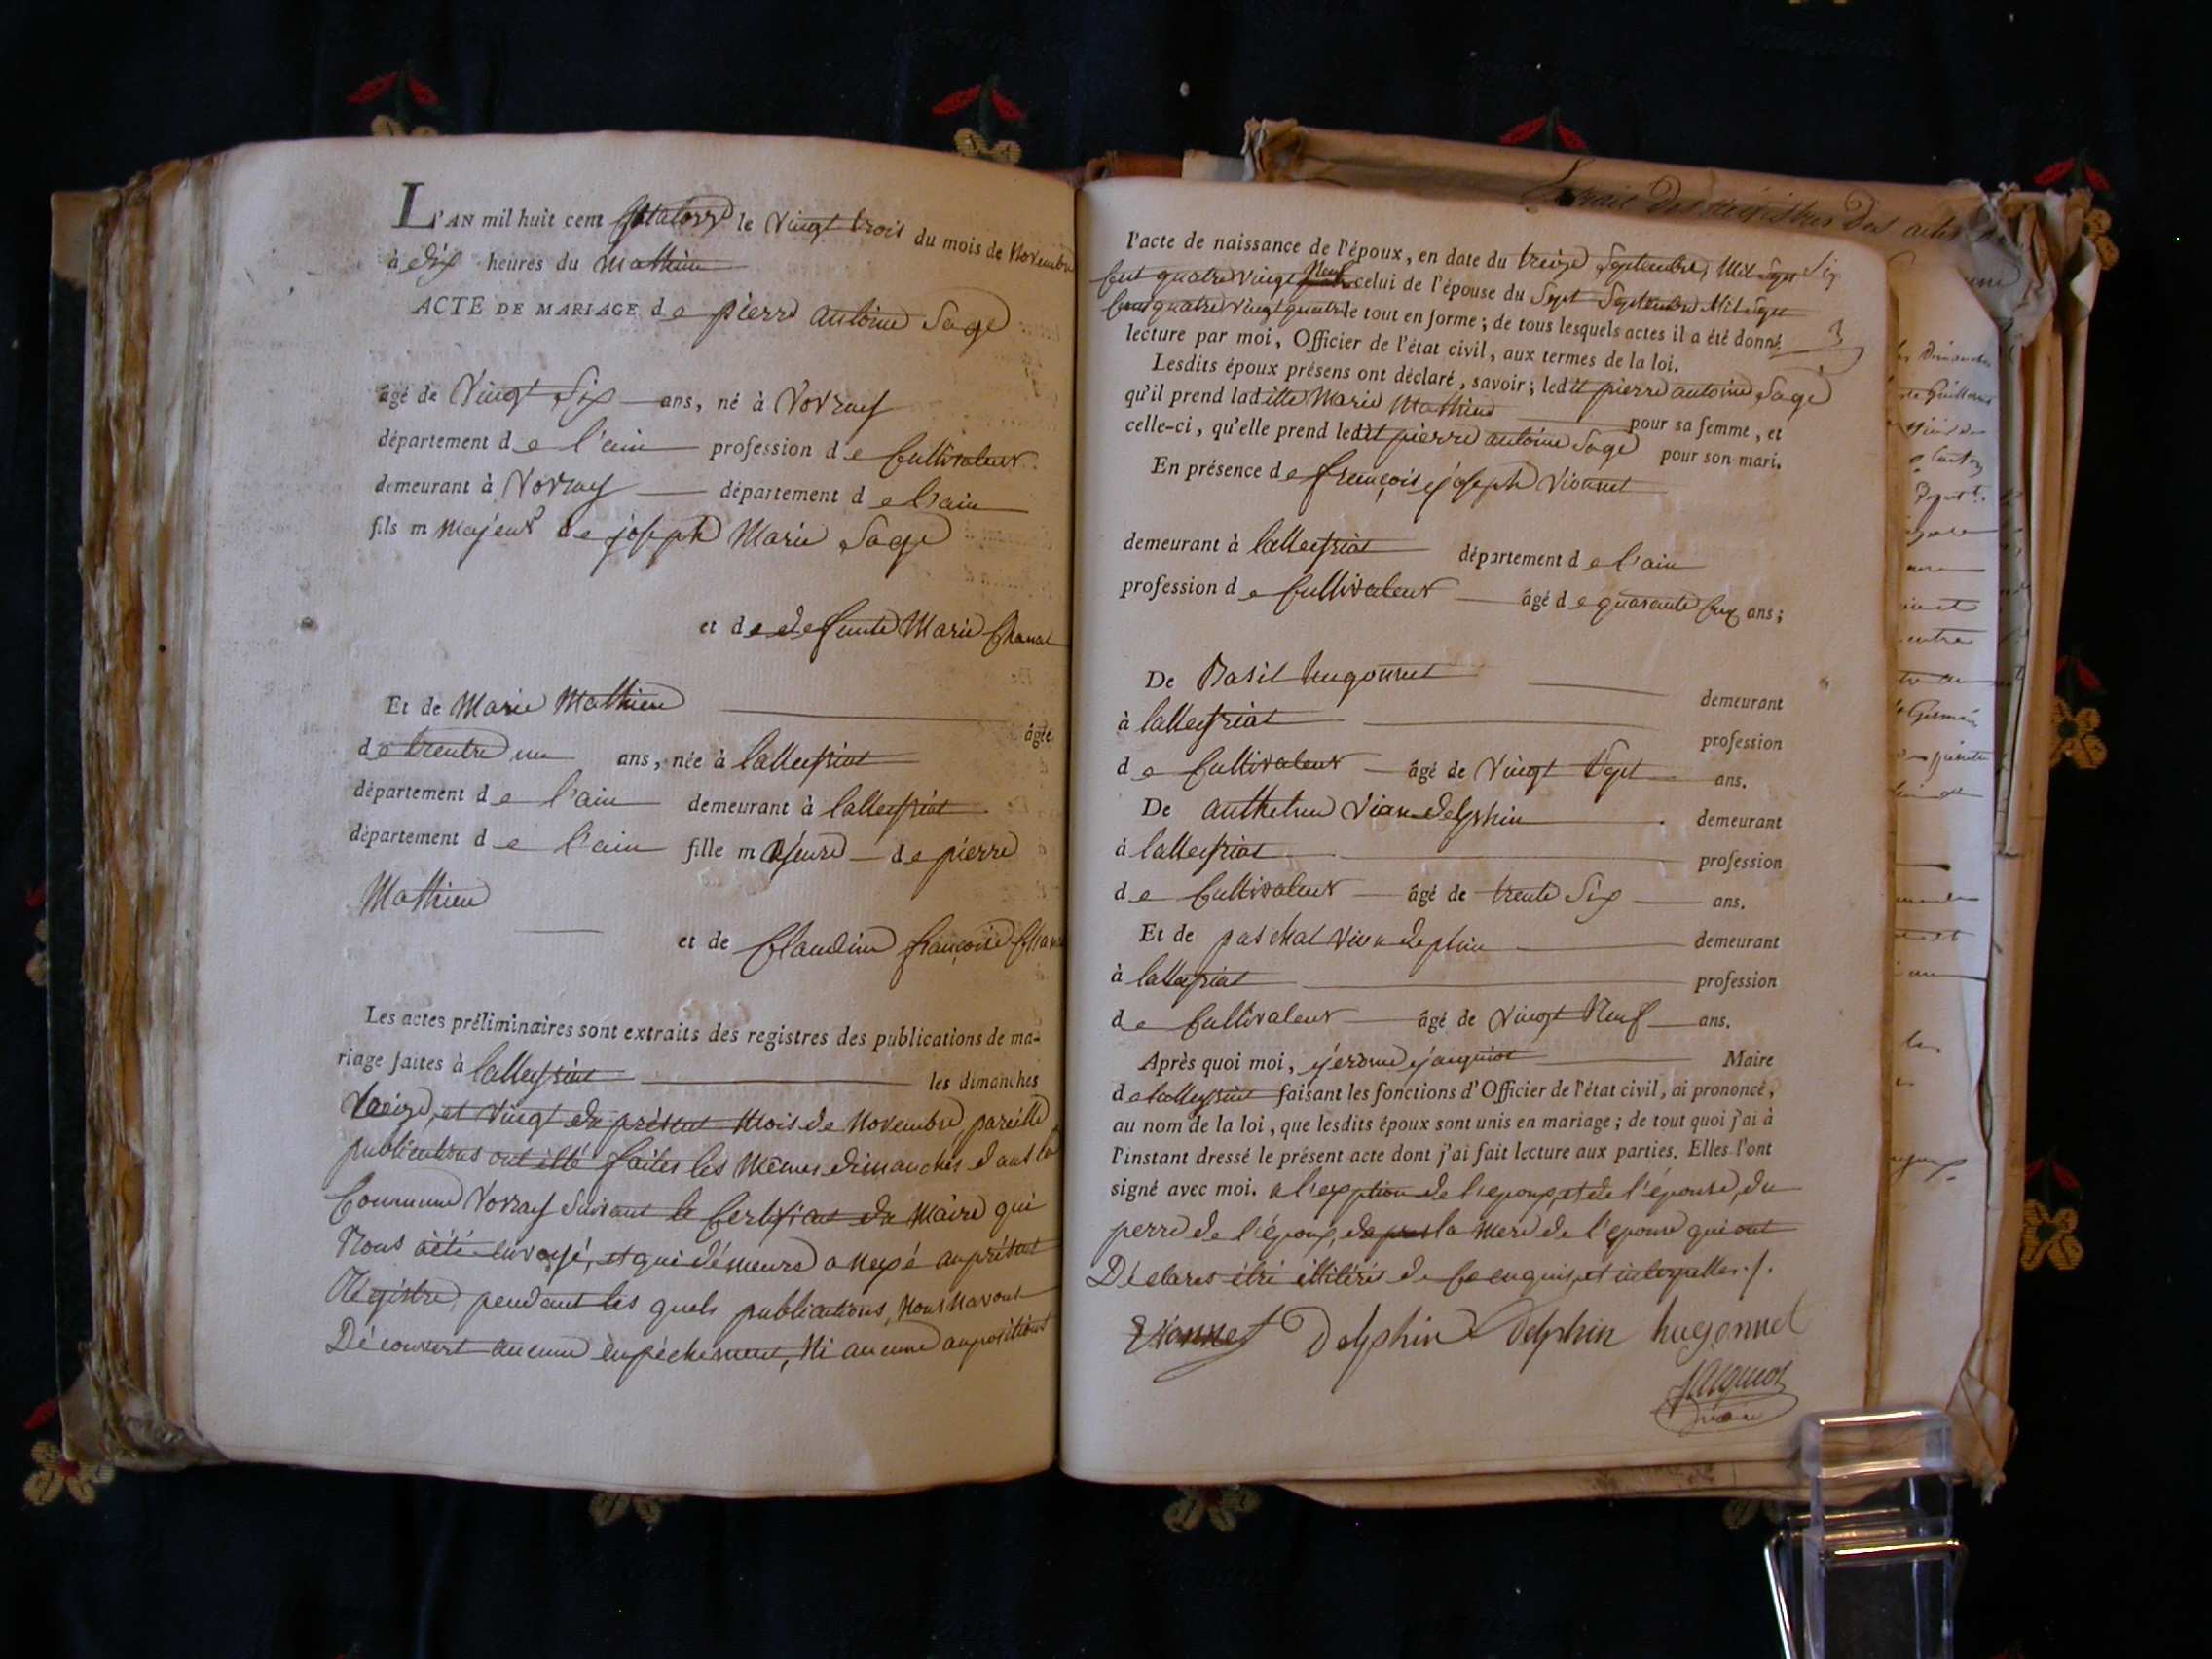 L'AN mil huit cent quatorze le vingt trois du mois de Novembre
à dix heures du mathin
ACTE DE MARIAGE de pierre antoine Sage
âgé de Vingt Six ans, né à Vovray
département de l'ain profession de Cultivateur
demeurant à Vovray département de l'ain
fils majeur de joseph Marie Sage
et de defunte Marie Chanal
Et de Marie Mathieu âgée
de trentre un ans, née à lalleyriat
département de l'ain demeurant à lalleyriat
département de l'ain fille majeure de pierre
Mathieu
et de Claudine françoise
Les actes préliminaires sont extraits des registres des publications de ma-
riage faites à lalleyriat les dimanches
treize, et vingt du présent Mois de Novembre, pareille
publications ont été faites les mêmes dimanches dans la
Commune Vovray Suivant le Certificat du Maire qui
Nous a été envoyé, et qui démeure annexé au présent
Régistre, pendant les quels publications, Nous Navons
Découvert aucune enpéchement, Ni aucune auposition
l'acte de naissance de l'époux, en date du treize Septembre Mil Sept
Cent quatre vingt celui de l'épouse du Sept Septembre Mil Sept
Cent quatre vingt quatre le tout en forme; de tous lesquels actes il a été donné
lecture par moi, Officier de l'état civil, aux termes de la loi.
Lesdits époux présens ont déclaré, savoir; ledit pierre antoine Sage
qu'il prend laditte Marie Mathieu pour sa femme, et
celle-ci, qu'elle prend ledit pierre antoine Sage pour son mari.
En présence de françois joseph Vionnet
demeurant à lalleyriat département de l'ain
profession de Cultivateur âgé de quarante ans;
De Basil hugonnet demeurant
à lalleyriat profession
de Cultivateur âgé de Vingt Sept ans.
De Delphin demeurant
à lalleyriat profession
de Cultivateur âgé de trente Six ans.
Et de paschal demeurant
à lalleyriat profession
de Cultivateur âgé de Vingt Neuf ans.
Après quoi moi, jérome jacquiot Maire
de lalleyriat faisant les fonctions d'Officier de l'état civil, ai prononcé,
au nom de la loi, que lesdits époux sont unis en mariage; de tout quoi j'ai à
l'instant dressé le présent acte dont j'ai fait lecture aux parties. Elles l'ont
signé avec moi. a l'exption de l'epoux, et de l'épouse, du
perre de l'époux, la Mere de l'epouse qui ont
Déclarés être illitérés de Ce enquis, et interpelles./.
Vionnet Delphin Delphin hugonnet
jacquiot
maire
Extrait Des régistres Des actes